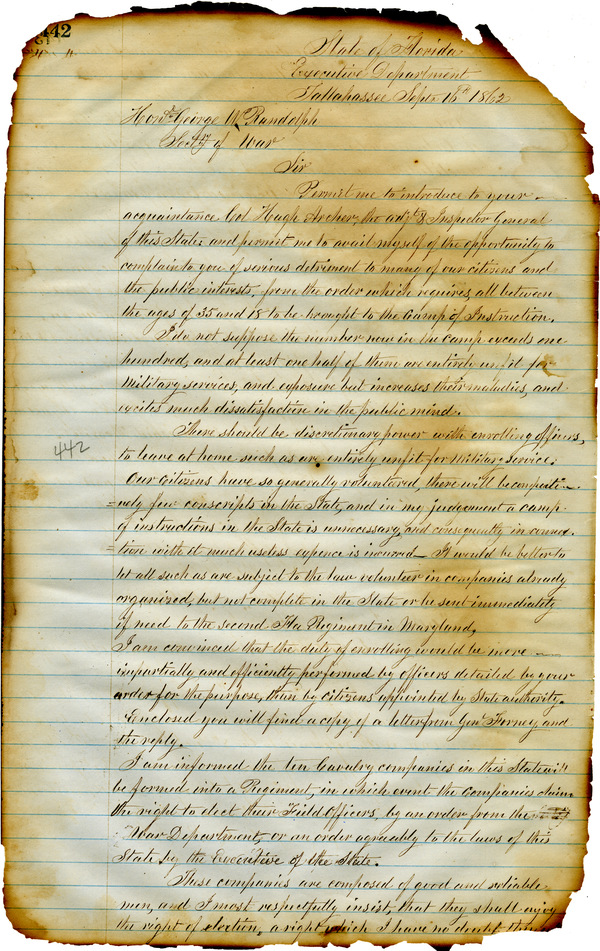 442
State of Florida
Executive Department
Tallahassee Sept 16th 1862
Hon. George W. Randolph
Secty of War
Sir
Permit me to introduce to your
acquaintance Col Hugh Archer, the adjt & Inspector General
of this State and permit me to avail myself of the opportunity to
complain to you of serious detriment to many of our citizens and
the public interests, from the order which requires, all between
the ages of 35 and 18 to be brought to the Camp of Instruction.
I do not suppose the number now in the Camp exceeds one
hundred, and at least one half of them are entirely unfit for
Military services, and exposure but increases their maladies, and
excites much dissatisfaction in the public mind.
There should be discretionary power with enrolling officers,
to leave at home such as are entirely unfit for Military service.
442
Our Citizens have so generally volunteered, there will be comparati-
=vely few conscripts in the State, and in my judgement a camp
of instructions in the State is unnecessary, and consequently in connec
=tion with it much useless expence is incurred— It would be better to
let all such as are subject to the law volunteer in companies already
organized, but not complete in the State or be sent immediately
if need to the second Fla Regiment in Maryland,
I am convinced that the duty of enrolling would be more —
impartially and efficiently performed by officers detailed by your
order for the purpose, than by citizens appointed by State authority.
Enclosed you will find a copy of a letter from Genl Forney and
the reply.
I am informed the ten Cavalry companies in this State will
be formed into a Regiment, in which event the Companies claim
the right to elect their Field Officers, by an order from the
War Department, or an order agreably to the laws of this
State by the Executive of the State.
These companies are composed of good and reliable
men, and I most respectfully insist, that they shall enjoy
the right of election, a right which I have no doubt